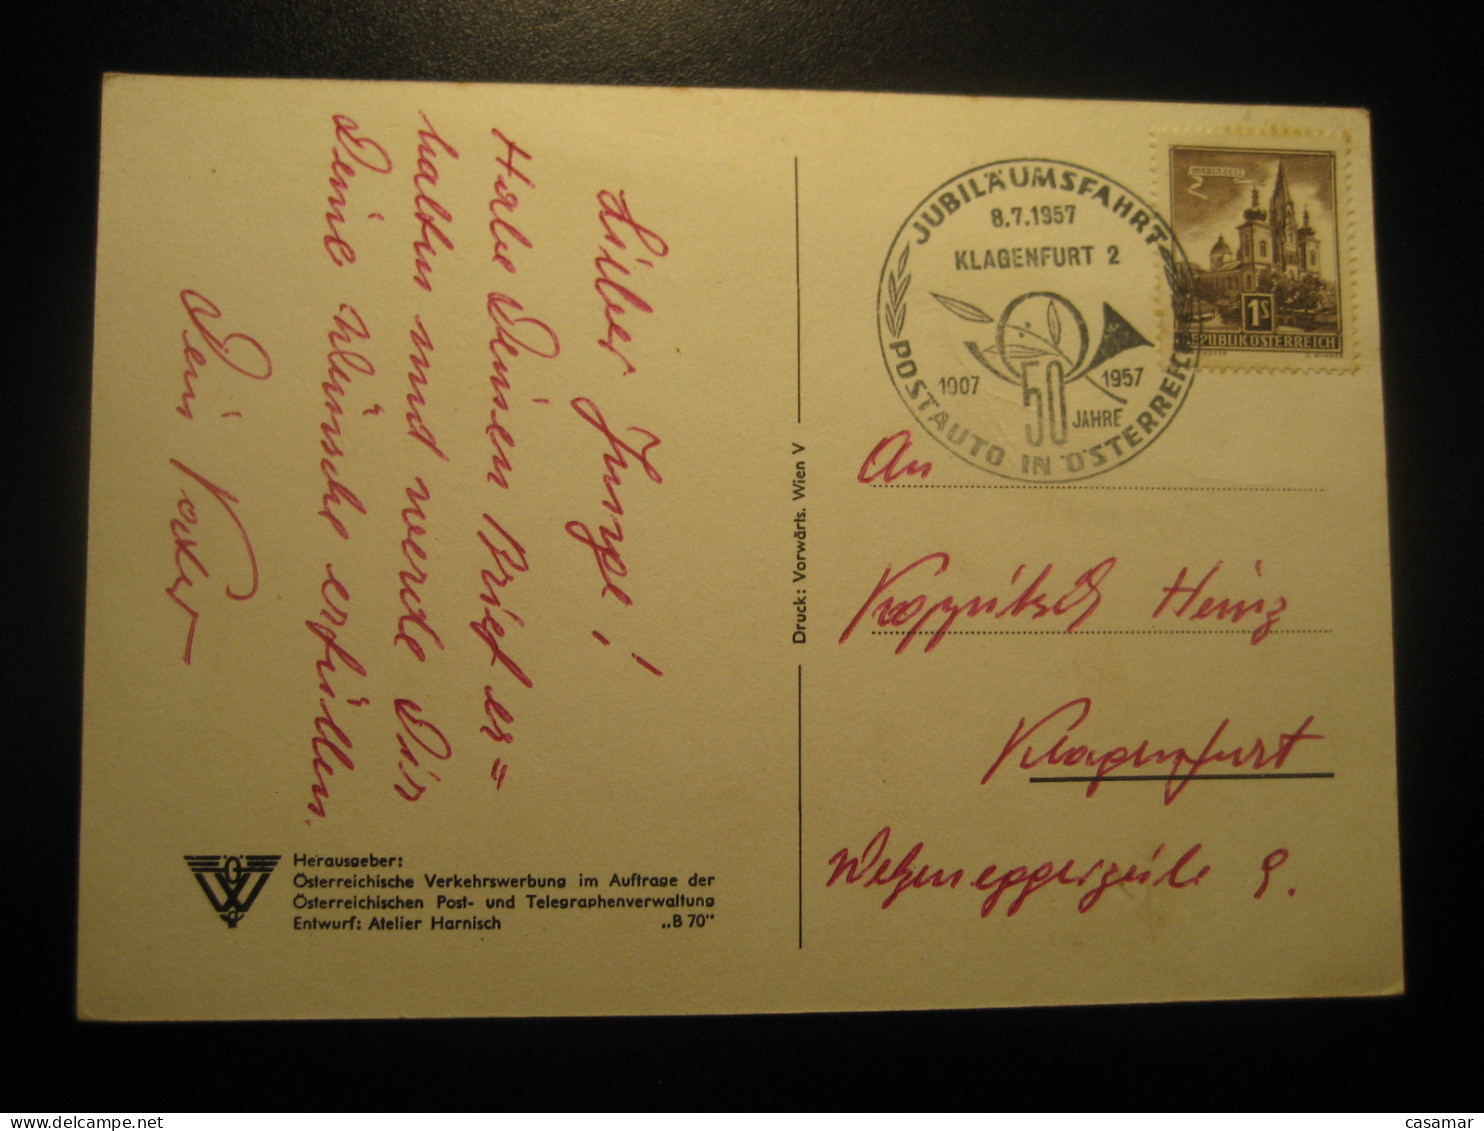 Lieber Junge!
Habe Deinen Brief er=
halten und werde Dir
Deine Wünsche erfüllen.
Dein Vater
Herausgeber:
Österreichische Verkehrswerbung im Auftrage der
Österreichischen Post- und Telegraphenverwaltung
Entwurf: Atelier Harnisch „B 70"
Druck: Vorwärts, Wien V
JUBILÄUMSFAHRT
8.7.1957
KLAGENFURT 2
1907 1957
50 JAHRE
POSTAUTO IN ÖSTERREICH
MARIAZELL
1S
REPUBLIK ÖSTERREICH
An
Heinz
Klagenfurt
9.
casamar